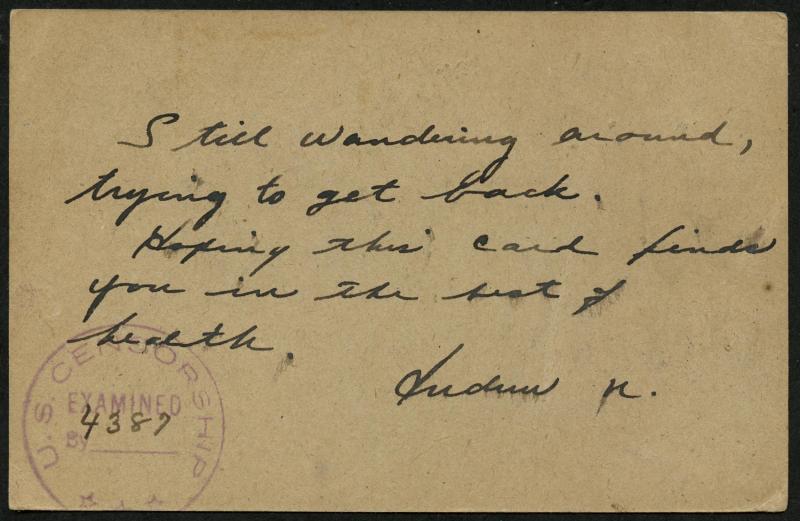 Still wandering around,
trying to get back.
Hoping this card finds
you in the best of
health.
Andrew N.
U.S. CENSORSHIP
EXAMINED
By 4387